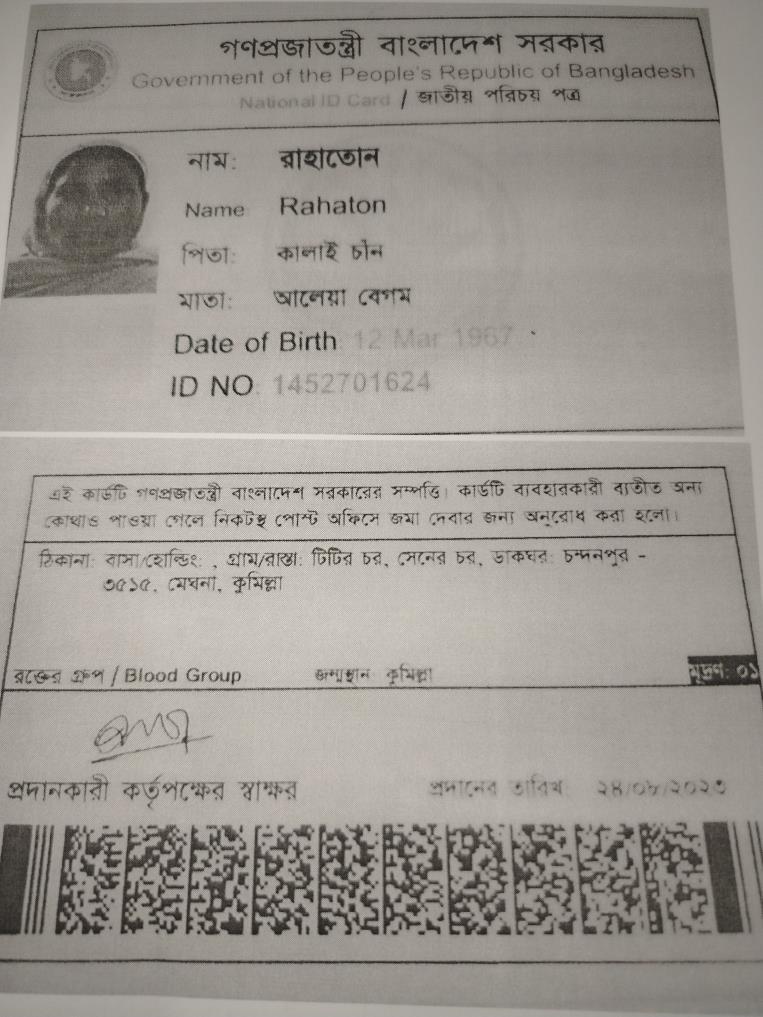 গণপ্রজাতন্ত্রী বাংলাদেশ সরকার
Government of the People's Republic of Bangladesh
National ID Card / জাতীয় পরিচয় পত্র
নাম: রাহাতোন
Name: Rahaton
পিতা: কালাই চাঁন
মাতা: আলেয়া বেগম
Date of Birth: 12 Mar 1967
ID NO: 1452701624
এই কার্ডটি গণপ্রজাতন্ত্রী বাংলাদেশ সরকারের সম্পত্তি। কার্ডটি ব্যবহারকারী ব্যতীত অন্য
কোথাও পাওয়া গেলে নিকটস্থ পোস্ট অফিসে জমা দেবার জন্য অনুরোধ করা হলো।
ঠিকানা: বাসা/হোল্ডিং: , গ্রাম/রাস্তা: টিটির চর, সেনের চর, ডাকঘর: চন্দনপুর -
৩৫১৫, মেঘনা, কুমিল্লা
রক্তের গ্রুপ / Blood Group জন্মস্থান: কুমিল্লা মুদ্রণ: ০১
প্রদানকারী কর্তৃপক্ষের স্বাক্ষর প্রদানের তারিখ: ২৪/০৮/২০২৩